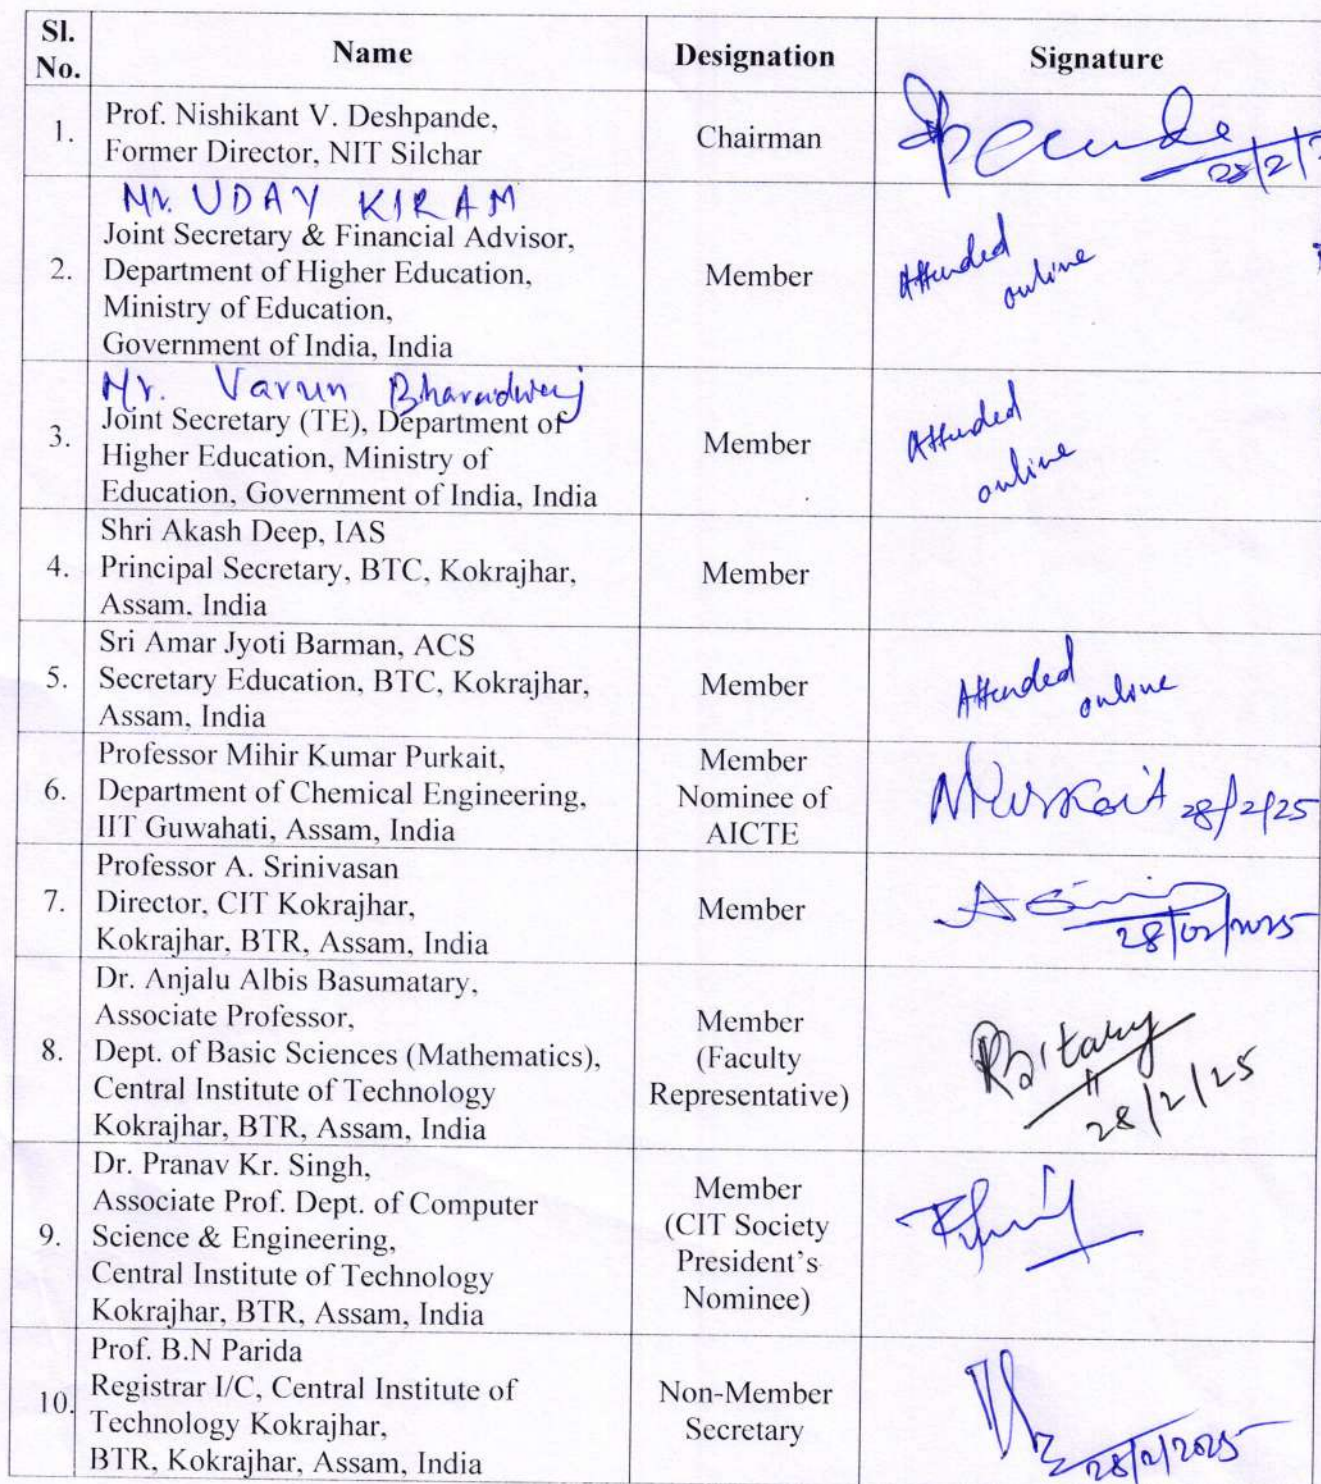 Sl. No. Name Designation Signature
1. Prof. Nishikant V. Deshpande,
Former Director, NIT Silchar
Chairman
28/2/
2. Mr. UDAY KIRAM
Joint Secretary & Financial Advisor,
Department of Higher Education,
Ministry of Education,
Government of India, India
Member
Attended
online
3. Mr. Varun Bharadwaj
Joint Secretary (TE), Department of
Higher Education, Ministry of
Education, Government of India, India
Member
Attended
online
4. Shri Akash Deep, IAS
Principal Secretary, BTC, Kokrajhar,
Assam, India
Member
5. Sri Amar Jyoti Barman, ACS
Secretary Education, BTC, Kokrajhar,
Assam, India
Member
Attended
online
6. Professor Mihir Kumar Purkait,
Department of Chemical Engineering,
IIT Guwahati, Assam, India
Member
Nominee of
AICTE
28/2/25
7. Professor A. Srinivasan
Director, CIT Kokrajhar,
Kokrajhar, BTR, Assam, India
Member
28/02/2025
8. Dr. Anjalu Albis Basumatary,
Associate Professor,
Dept. of Basic Sciences (Mathematics),
Central Institute of Technology
Kokrajhar, BTR, Assam, India
Member
(Faculty
Representative)
28/2/25
9. Dr. Pranav Kr. Singh,
Associate Prof. Dept. of Computer
Science & Engineering,
Central Institute of Technology
Kokrajhar, BTR, Assam, India
Member
(CIT Society
President's
Nominee)
10. Prof. B.N Parida
Registrar I/C, Central Institute of
Technology Kokrajhar,
BTR, Kokrajhar, Assam, India
Non-Member
Secretary
28/2/2025